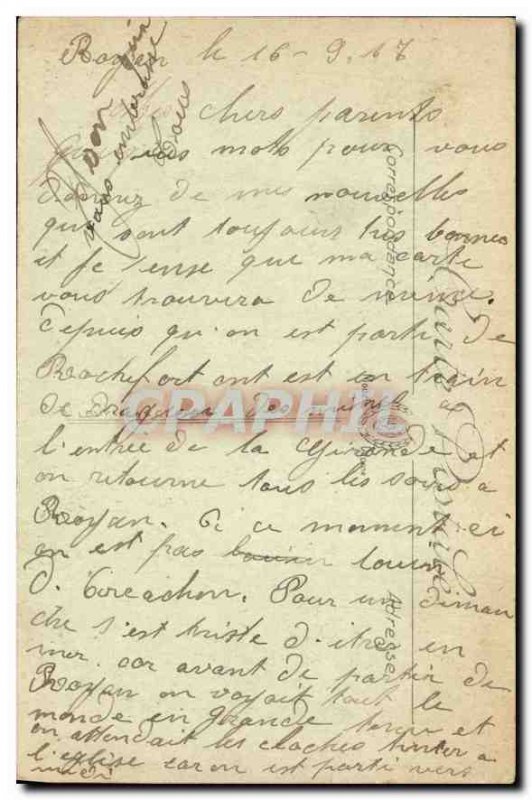 Royan le 16-9.17
chers parents
mots pour vous
donnez de mes nouvelles
qui sont toujours très bonnes
et je pense que ma carte
vous trouvera de même.
Depuis qu'on est parti de
Rochefort ont est en train
de draguer des mines
l'entrée de la Gironde et
on retourne tous les soirs a
Royan. Et ce moment ci
on est pas loin
d'Arcachon. Pour un diman
che s'est triste d'itre en
mer. car avant de partir de
Royan on voyait tout le
monde en grande tenu et
on attendait les cloches tinter a
l'église car on est parti vers
midi
Votre
vous embrasse
Correspondance
Adresse
CPAPHIL